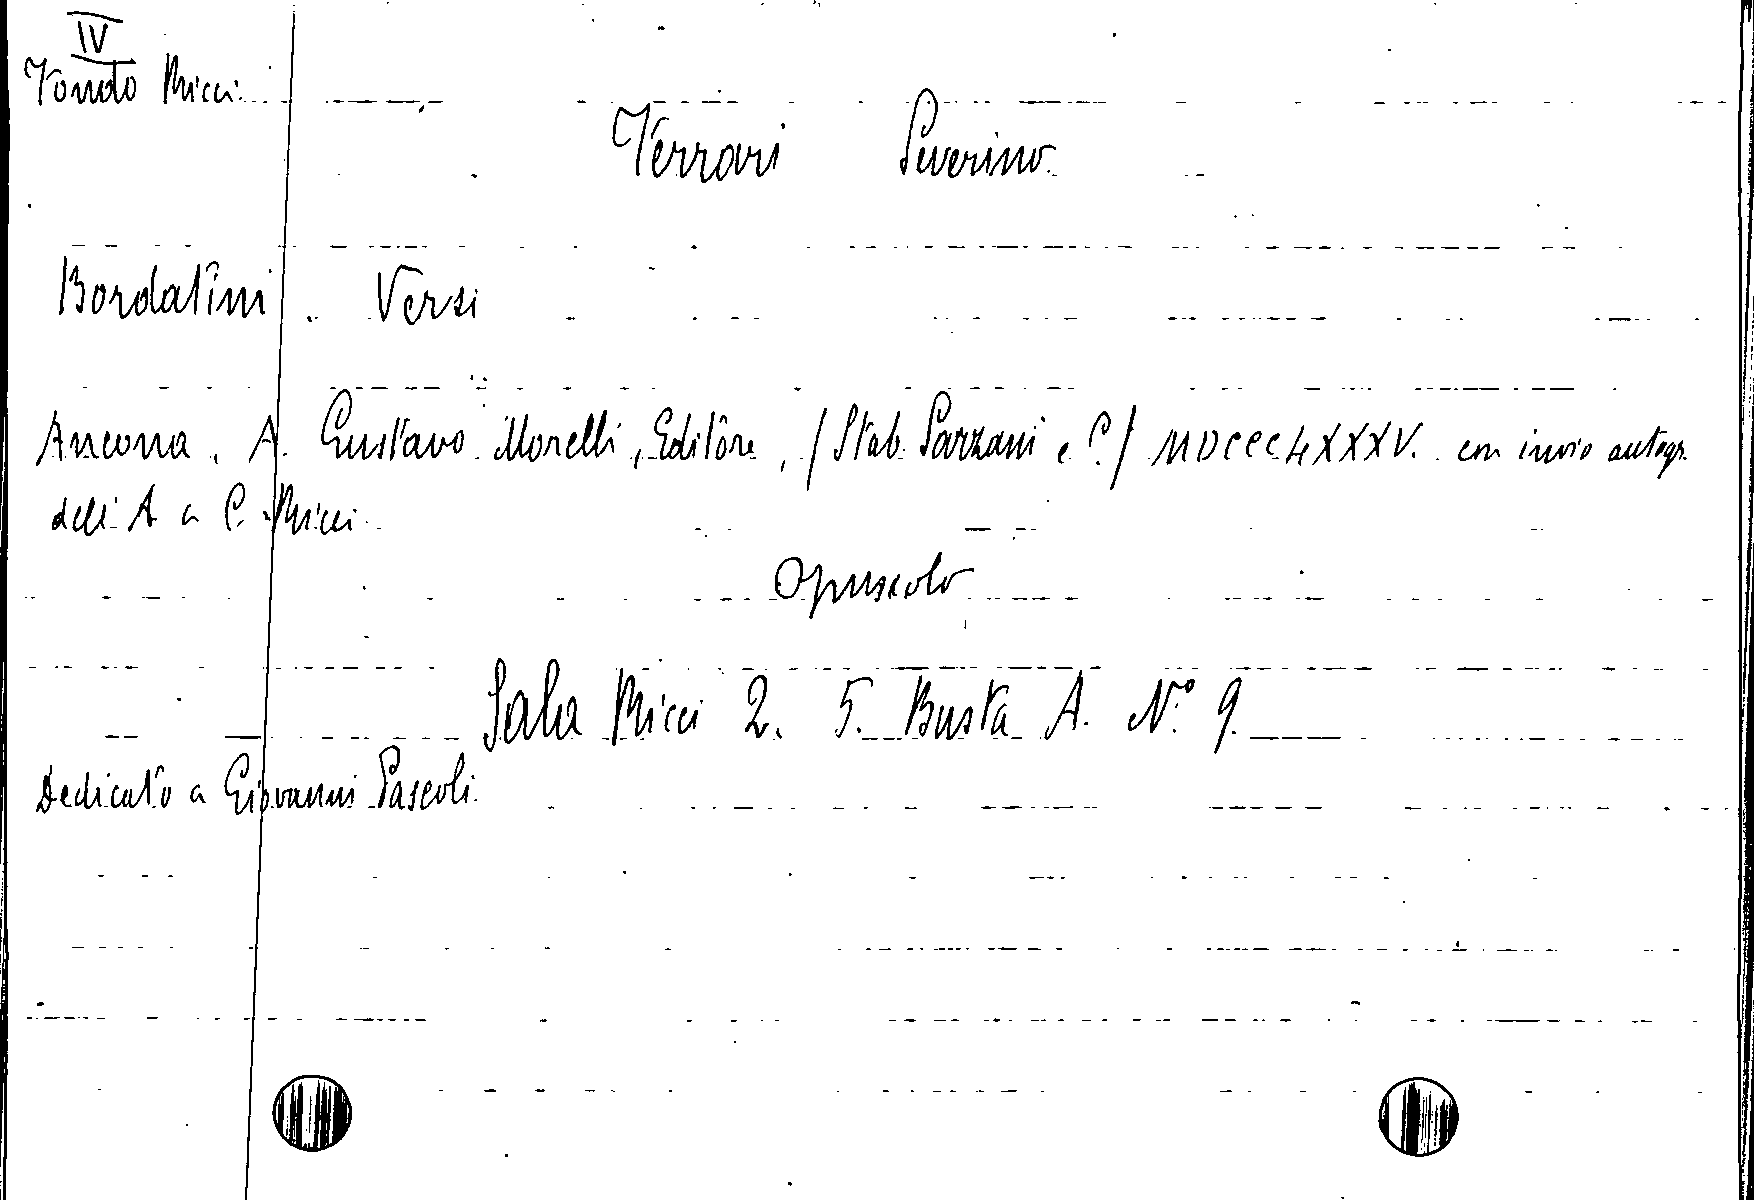 IV
Fondo Ricci
Ferrari Severino
Bordatini. Versi
Ancona, A. Gustavo Morelli, Editore, / Stab. Sarzani e C. / MDCCCLXXXV. con invio autogr.
dell'A a C. Ricci
Opuscolo
Sala Ricci 2. 5. Busta A. N.° 9.
Dedicato a Giovanni Pascoli.